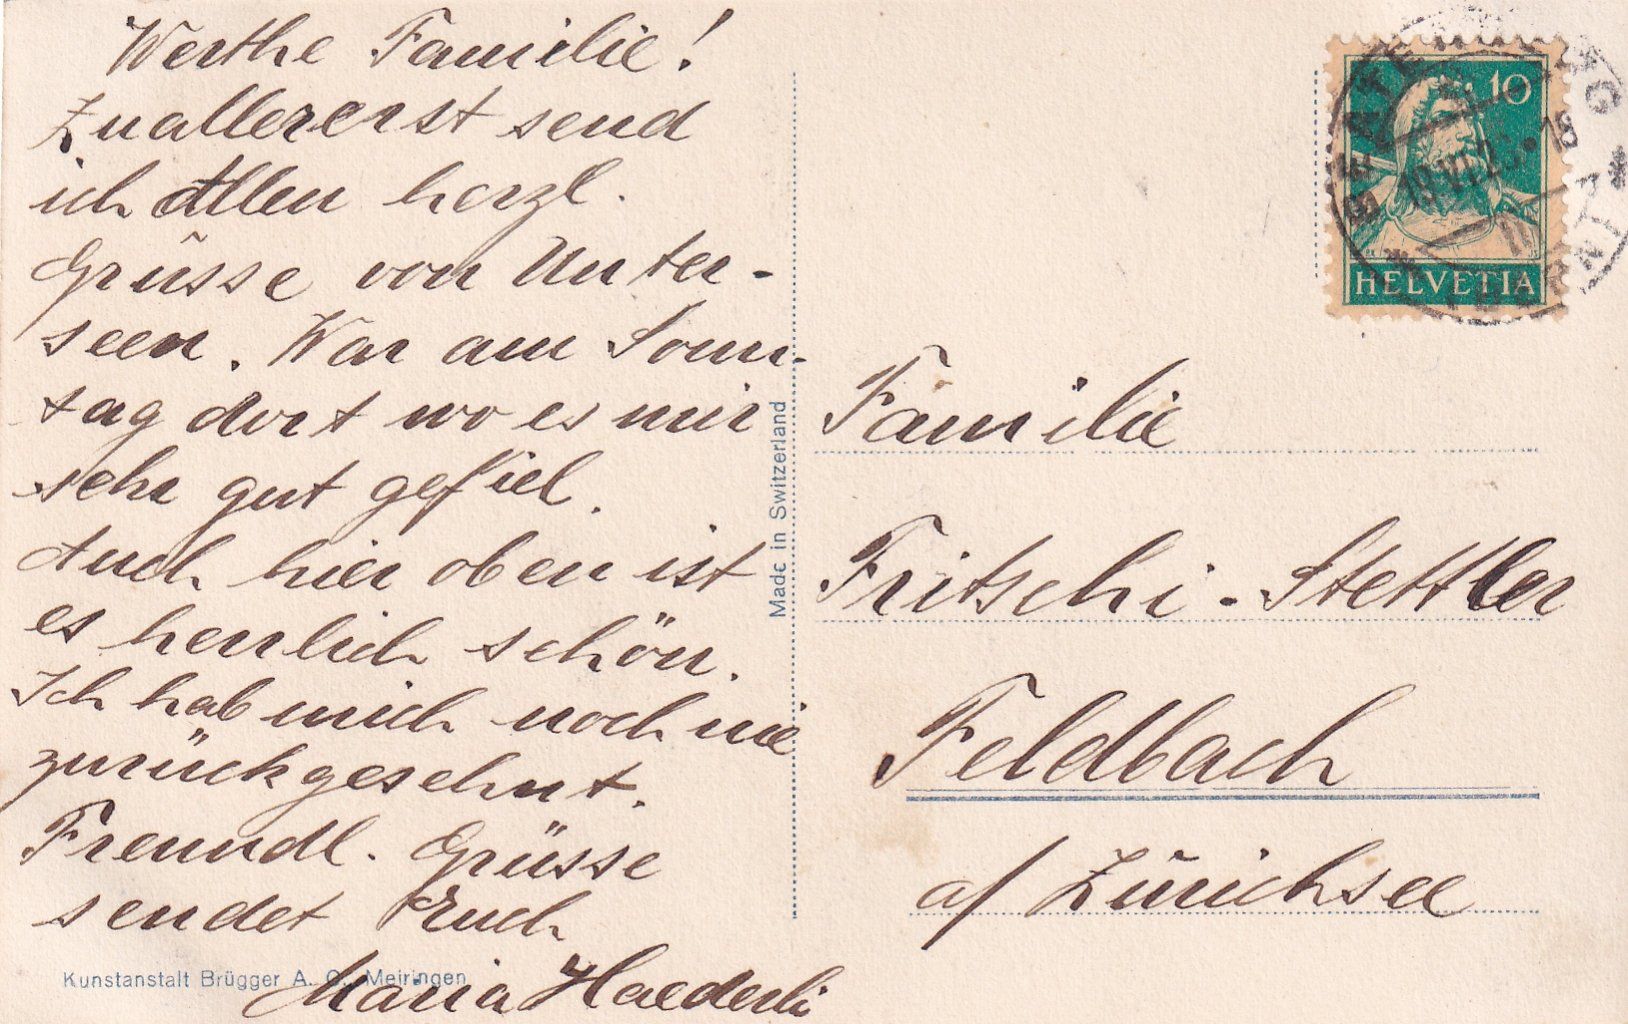 Werthe Familie!
Zuallererst send
ich Allen herzl.
Grüsse von Unter-
seen. War am Sonn-
tag dort wo es mir
sehr gut gefiel.
Auch hier oben ist
es herrlich schön.
Ich hab mich noch nie
zurückgesehnt.
Freundl. Grüsse
sendet Euch
Maria Haederli
Kunstanstalt Brügger A. G., Meiringen
Made in Switzerland
10
HELVETIA
Familie
Fritschi-Stettler
Feldbach
a/ Zürichsee